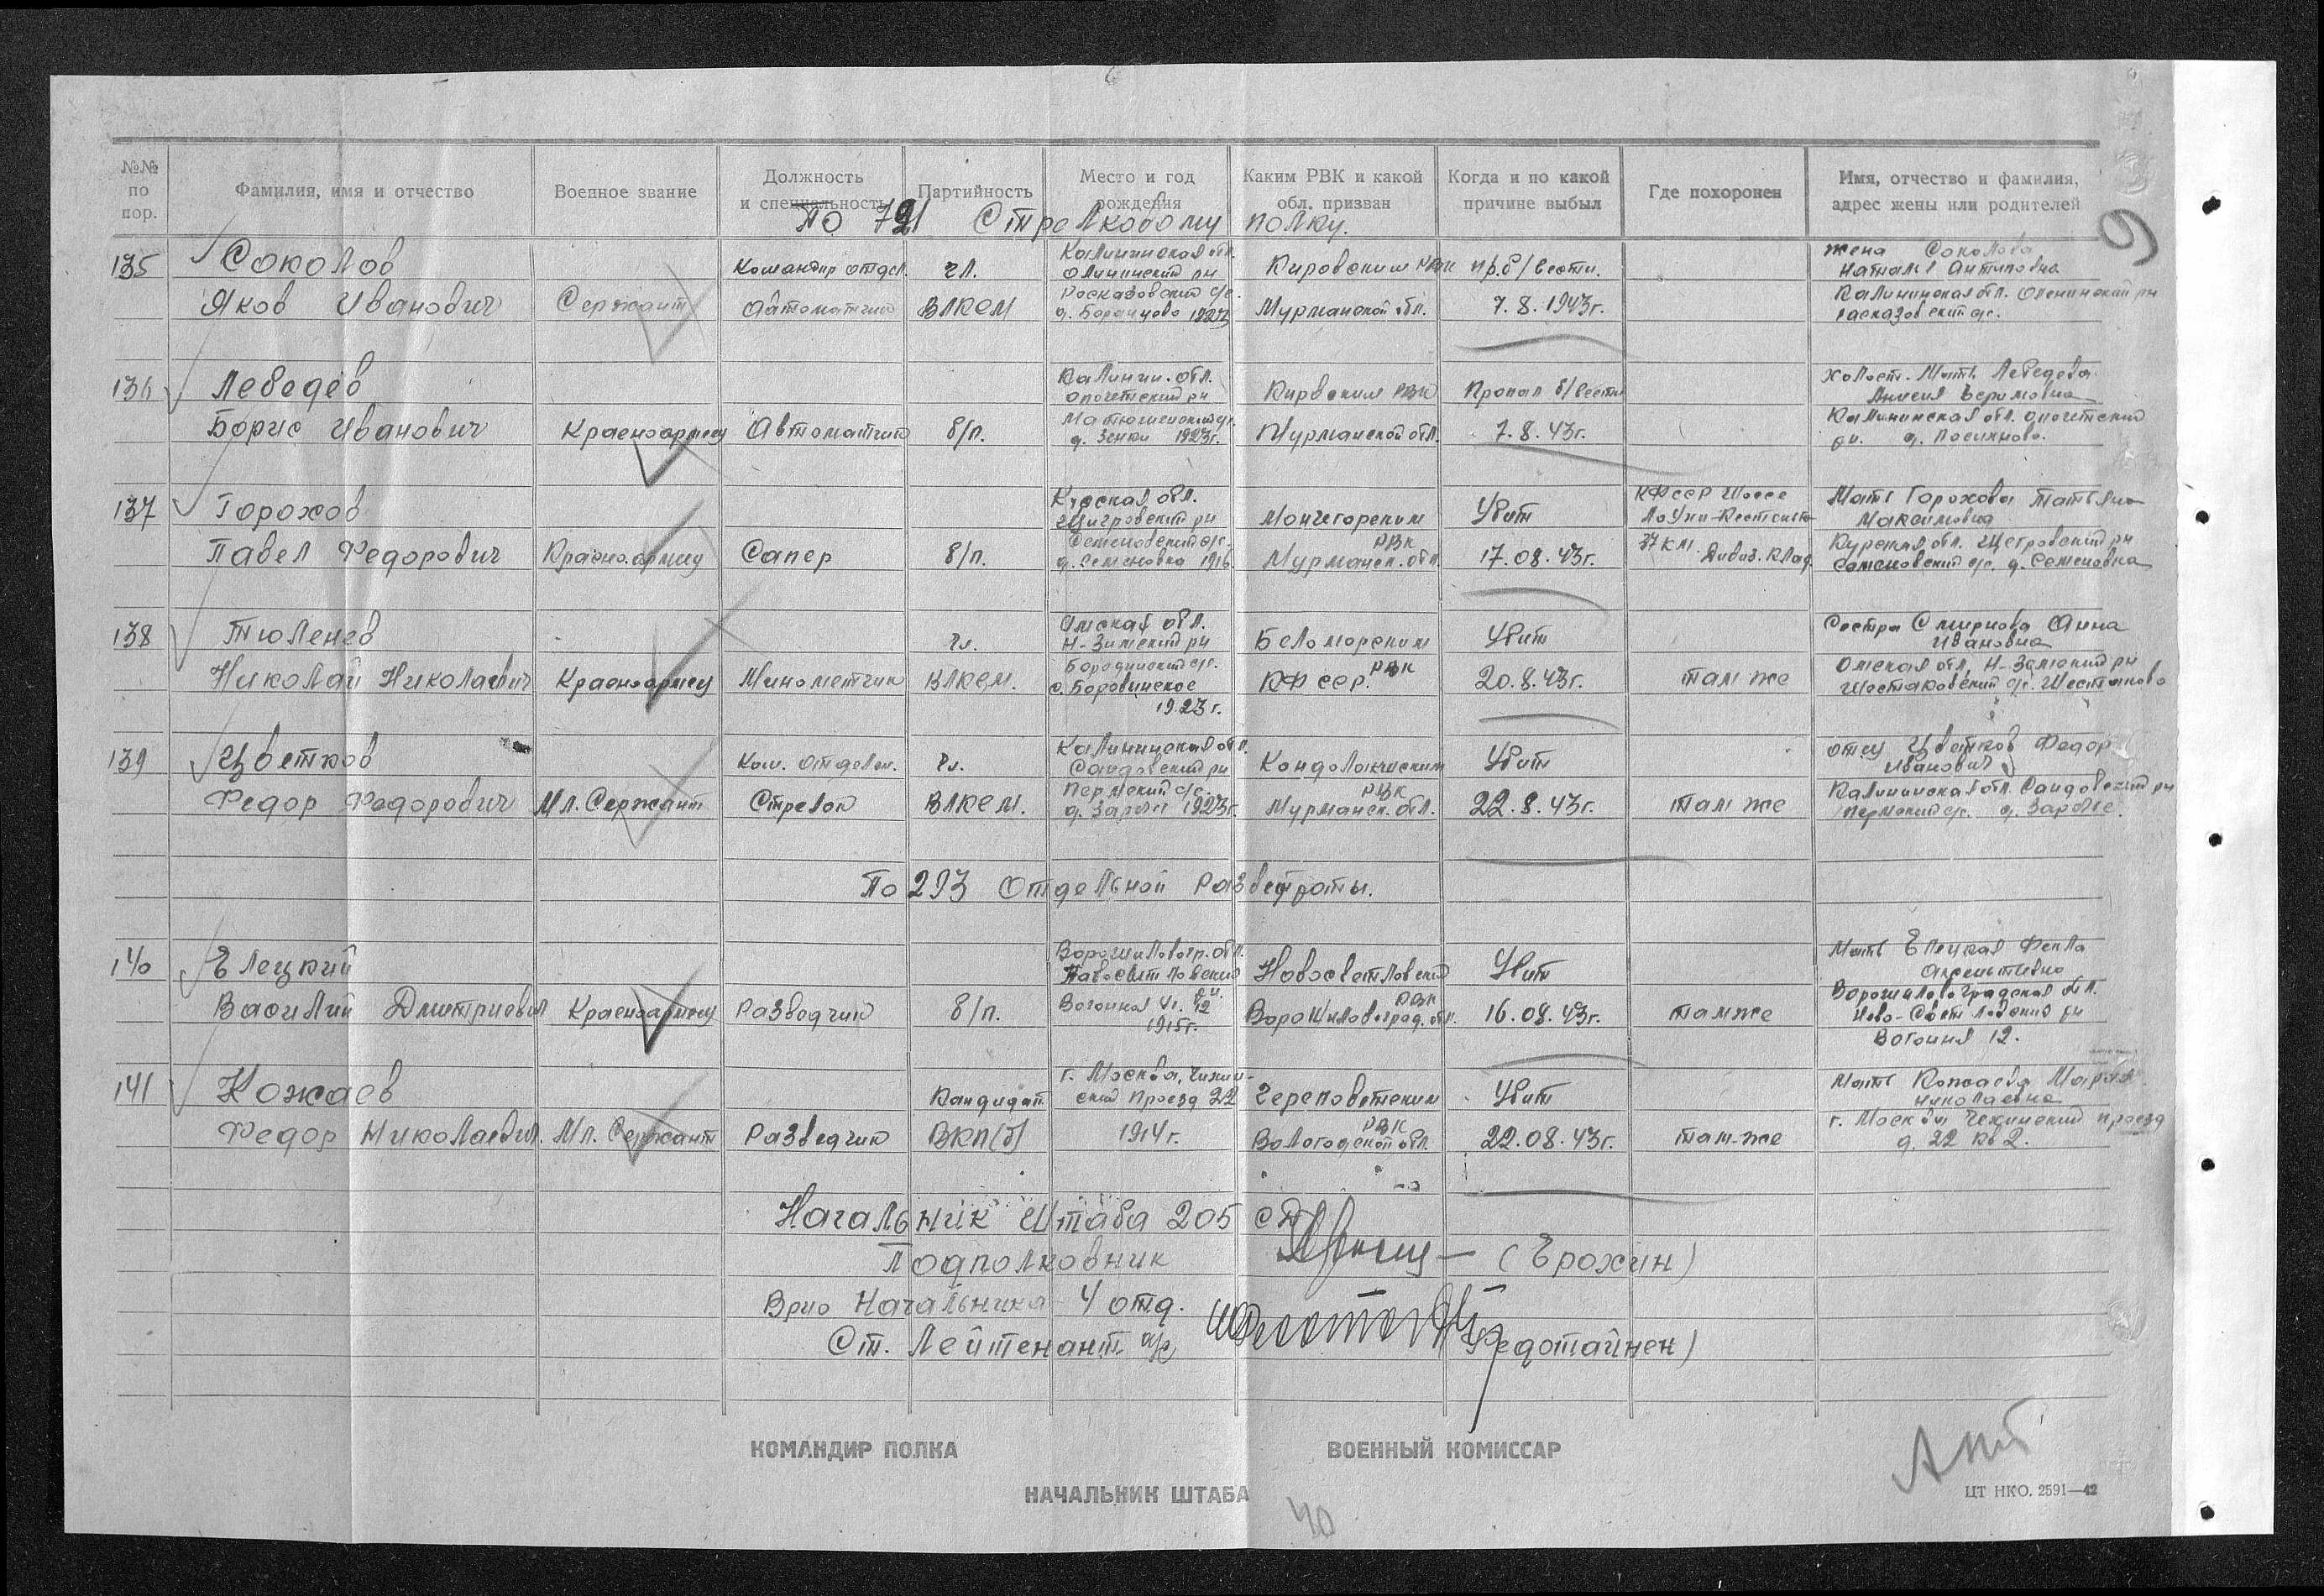 №№ по пор.
Фамилия, имя и отчество
Военное звание
Должность и специальность
Партийность
Место и год рождения
Каким РВК и какой обл. призван
Когда и по какой причине выбыл
Где похоронен
Имя, отчество и фамилия, адрес жены или родителей
По 721 Стрелковому полку.
135 Соколов Командир отдел. чл. Калининская обл. Кировским РВК пр. б/вести. жена Соколова
Оленинский рн Наталья Антиповна
Яков Иванович Сержант Автоматчик ВЛКСМ д. 1923 Мурманской обл. 7.8.1943г. Калининская обл. Оленинский рн
с/с.
136 Лебедев Калинин. обл. Кировским РВК Пропал б/вести Холост. Мать Лебедева
Борис Иванович Красноармеец Автоматчик б/п. 1923г. Мурманской обл. 7.8.43г. Калининская обл.
рн. д.
137 Горохов Курская обл. Мончегорским Убит КФССР Шоссе Мать Горохова Татьяна
Щигровский рн РВК Лоухи-Кестеньга Максимовна
Павел Федорович Красноармеец Сапер б/п. Семеновский с/с. Мурманск. обл. 17.08.43г. 37 км. Дивиз. клад. Курская обл. Щегровский рн
д. Семеновка 1916 Семеновский с/с. д. Семеновка
138 Тюленев чл. Омская обл. Беломорским Убит Сестра Смирнова Анна
рн РВК Ивановна
Николай Николаевич Красноармеец Минометчик ВЛКСМ. с. Боровинское КФССР. 20.8.43г. там же Омская обл,
1923г.
139 Цветков Ком. отделен. чл. Калининская обл. Убит отец Цветков Федор
Сандовский рн РВК Иванович
Федор Федорович Мл. Сержант Стрелок ВЛКСМ. 1923г. Мурманск. обл. 22.8.43г. там же Калининская обл. Сандовский рн
По 293 отдельной разведроты.
140 Елецкий Ворошиловогр. обл. Новосветловский Убит Мать Елецкая Фекла
РВК
Василий Дмитриевич Красноармеец Разведчик б/п. 1915г. Ворошиловоград. обл. 16.08.43г. там же Ворошиловоградская обл.
12.
141 Кожаев Кандидат г. Москва, Череповетским Убит Мать Кожаева Мария
проезд 22 РВК Николаевна
Федор Николаевич. Мл. Сержант Разведчик ВКП(б) 1914г. Вологодской обл. 22.08.43г. там-же г. Москва проезд
д. 22 кв 2.
Начальник Штаба 205 СД
Подполковник (Ерохин)
Врио Начальника 4 отд.
Ст. Лейтенант а/с Федотайнен)
КОМАНДИР ПОЛКА
ВОЕННЫЙ КОМИССАР
НАЧАЛЬНИК ШТАБА
ЦТ НКО. 2591—42
40